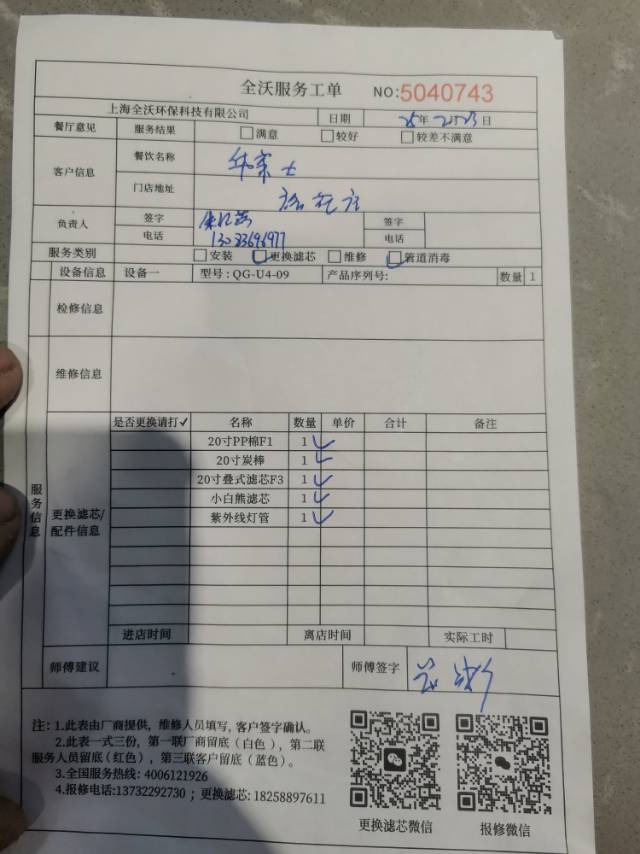 全沃服务工单 NO:5040743
上海全沃环保科技有限公司 日期 年 月 23日
餐厅意见 服务结果 满意 较好 较差不满意
客户信息 餐饮名称 华莱士
门店地址
负责人 签字 签字
电话 13023696977 电话
服务类别 安装 更换滤芯 维修 管道消毒
设备信息 设备一 型号:QG-U4-09 产品序列号: 数量 1
检修信息
维修信息
服务信息
更换滤芯/配件信息
是否更换请打✓ 名称 数量 单价 合计 备注
20寸PP棉F1 1 ✓
20寸炭棒 1 ✓
20寸叠式滤芯F3 1 ✓
小白熊滤芯 1 ✓
紫外线灯管 1 ✓
进店时间 离店时间 实际工时
师傅建议 师傅签字
注: 1.此表由厂商提供, 维修人员填写, 客户签字确认。
2.此表一式三份, 第一联厂商留底(白色), 第二联
服务人员留底(红色), 第三联客户留底(蓝色)。
3.全国服务热线: 4006121926
4.报修电话:13732292730 ; 更换滤芯: 18258897611
更换滤芯微信 报修微信